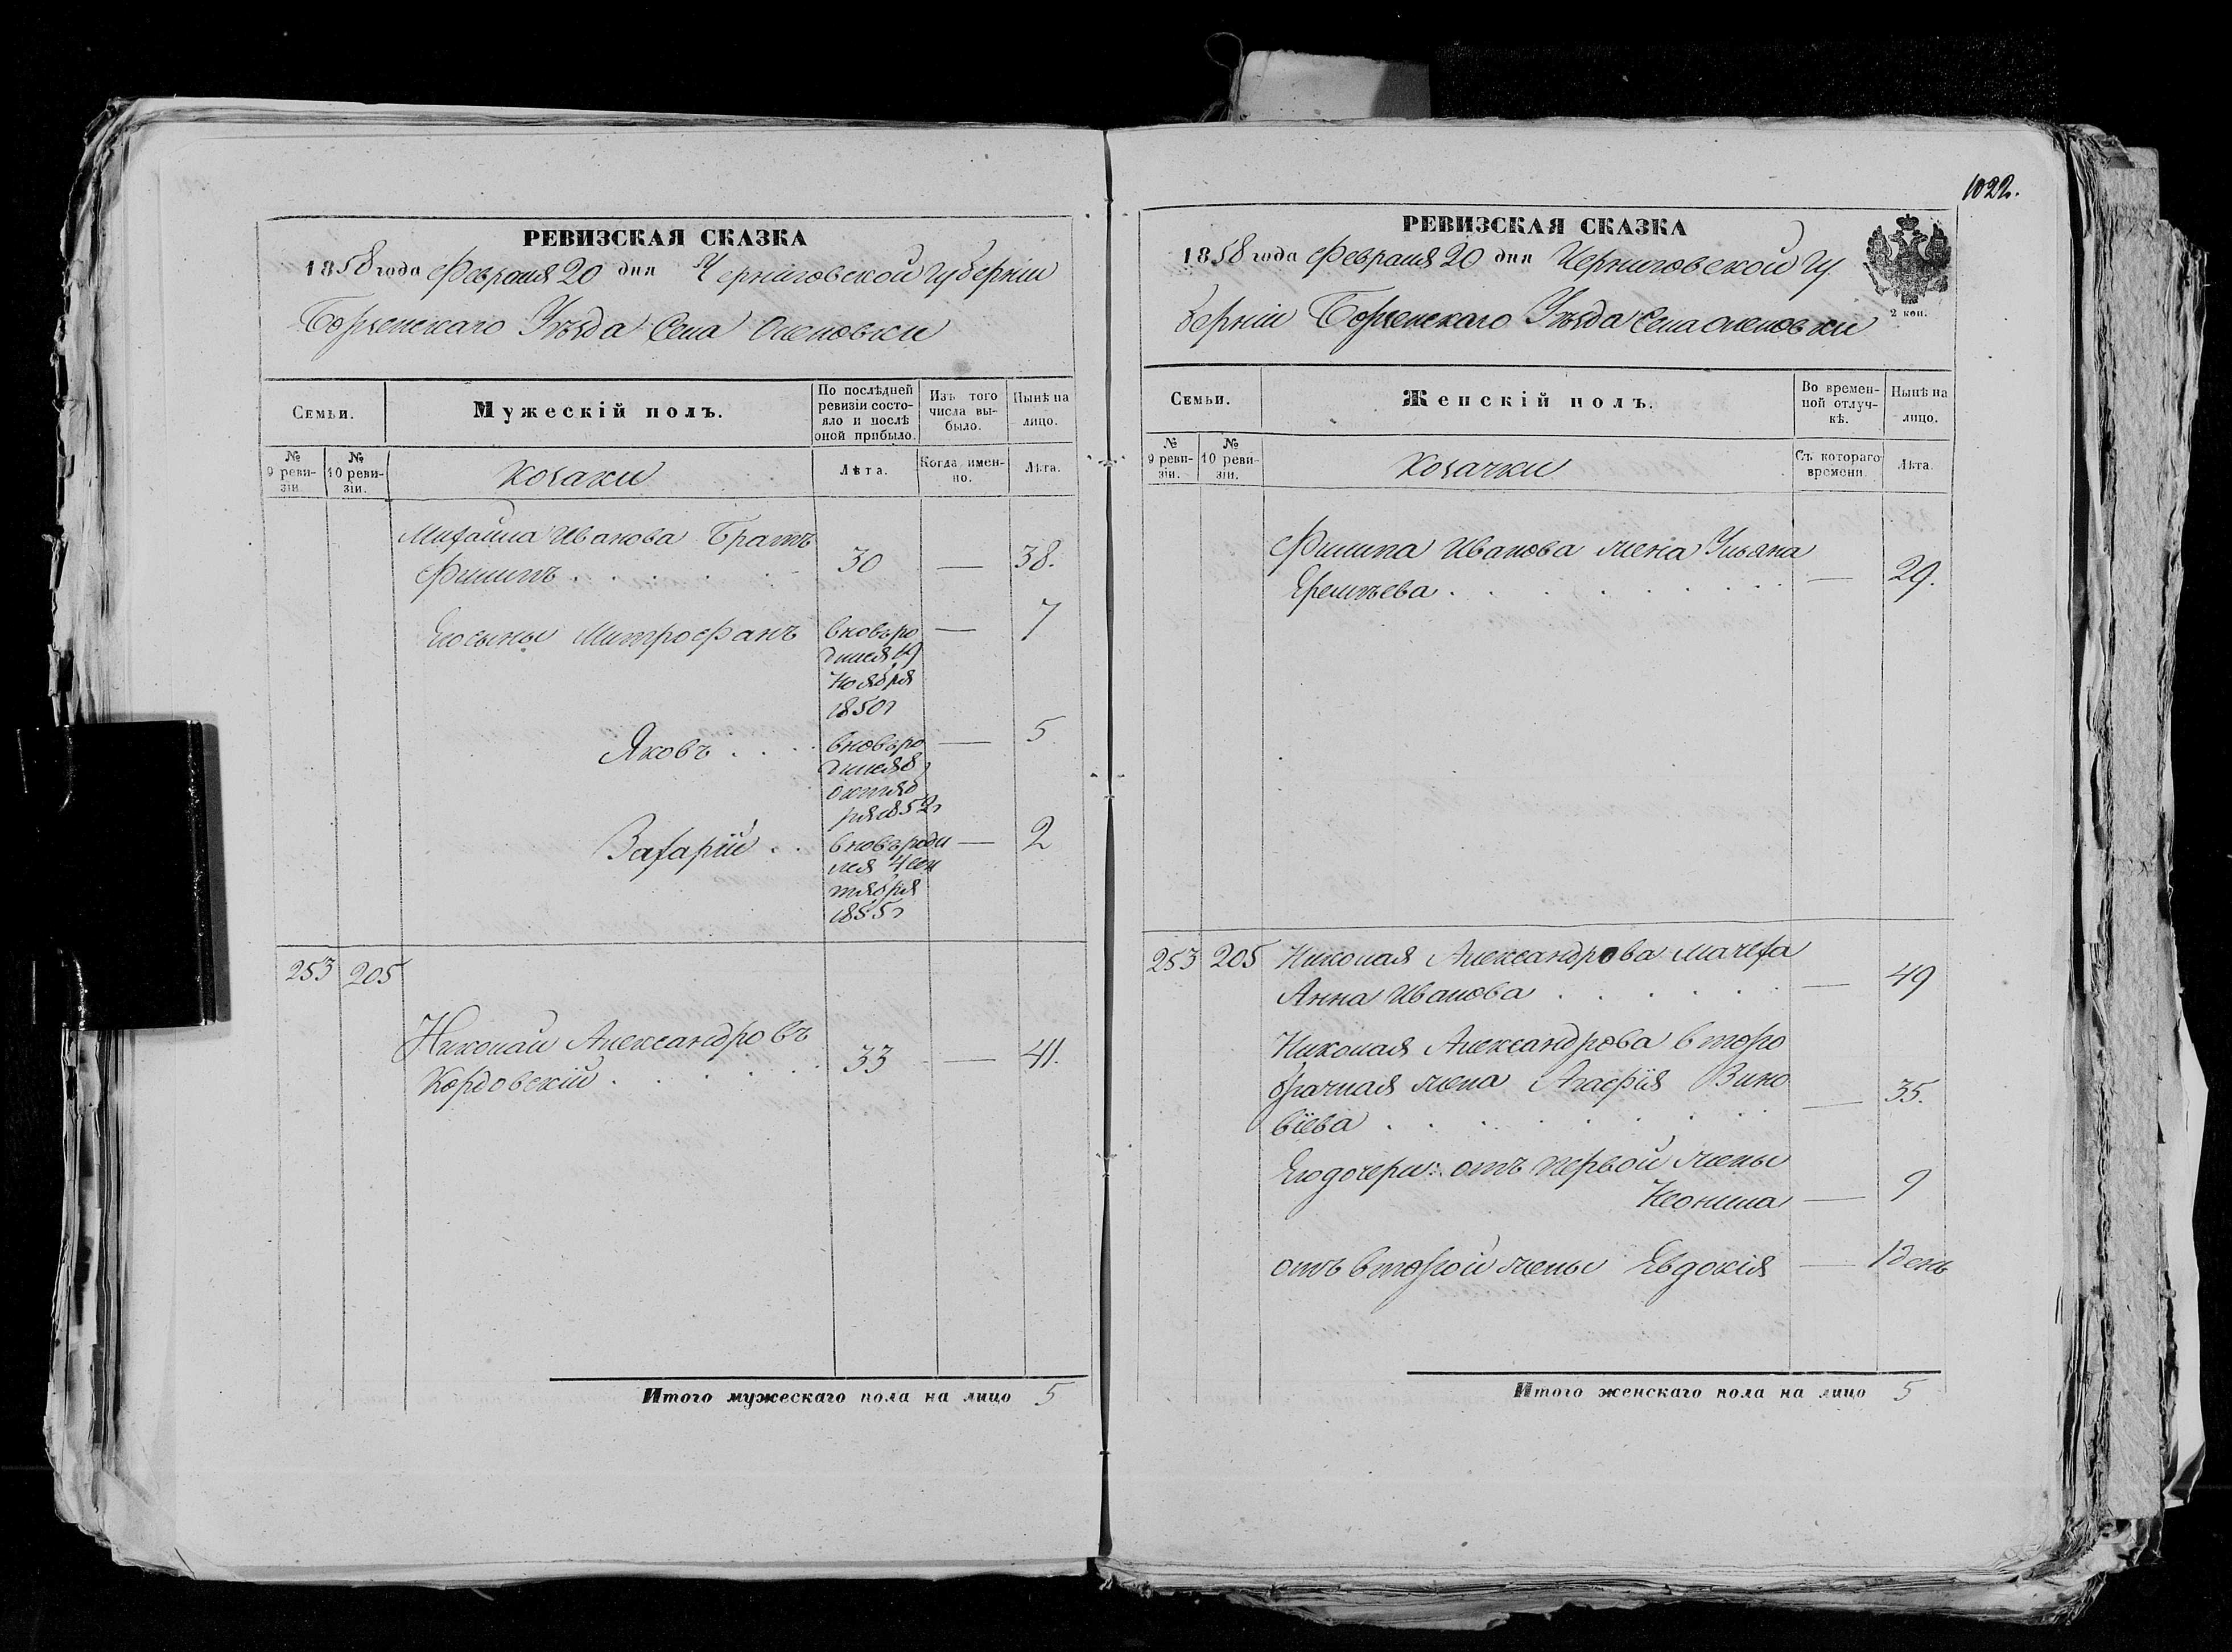 1022.
РЕВИЗСКАЯ СКАЗКА
1858 года Февраля 20 дня Черниговской губерніи
Борзенскаго Уѣзда Села Оленовки
Семьи.
Мужескій полъ.
По послѣдней ревизіи состояло и послѣ оной прибыло.
Изъ того числа выбыло.
Нынѣ на лицо.
№ 9 ревизіи.
№ 10 ревизіи.
Козаки
Лѣта.
Когда именно.
Лѣта.
Михайла Иванова Братъ
Филипъ . . . . . 30 — 38.
Его сыны Митрофанъ вновьро — 7
дился 19
Ноября
1850г
Яковъ . . . вновьро — 5
дился 8
октяб
ря 1852г
Захарій . . вновьроди — 2
лся 4 сен
тября
1855г
253 205
Николай Александровъ
Кордовскій . . . . . 33 — 41.
Итого мужескаго пола на лицо 5
РЕВИЗСКАЯ СКАЗКА
1858 года Февраля 20 дня Черниговской Гу
берніи Борзенскаго Уѣзда Села Оленовки
2 коп.
Семьи.
Женскій полъ.
Во временной отлучкѣ.
Нынѣ на лицо.
№ 9 ревизіи.
№ 10 ревизіи.
Козачки
Съ котораго времени.
Лѣта.
Филипа Иванова жена Ульяна
Еремѣева . . . . . . . — 29.
253 205 Николая Александрова мачеха
Анна Иванова . . . . . — 49
Николая Александрова второ
брачная жена Агафія Зино
віева . . . . . . . — 35.
Его дочери: отъ первой жены
Неонила — 9
отъ второй жены Евдокія — 1 день
Итого женскаго пола на лицо 5